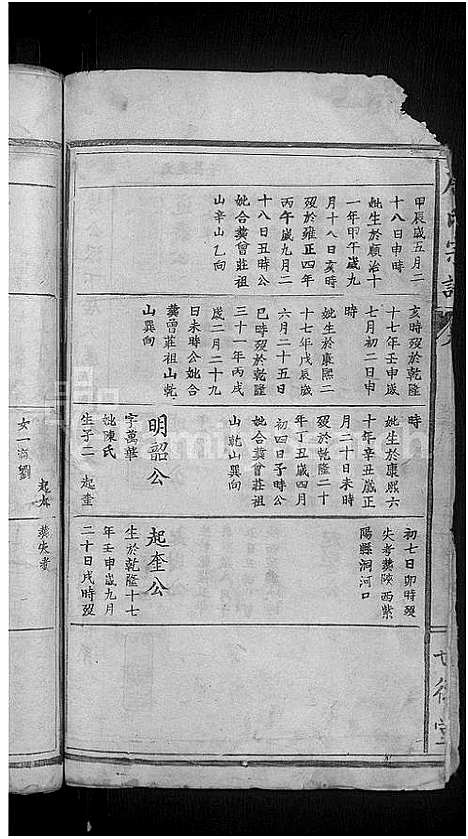 甲辰歲五月二
十八日申時
妣生於順治十
一年甲午歲九
月十八日亥時
歿於雍正四年
丙午歲九月二
十八日丑時公
妣合葬曾莊祖
山辛山乙向
亥時歿於乾隆
十七年壬申歲
七月初二日申
時
妣生於康熙二
十七年戊辰歲
六月二十五日
巳時歿於乾隆
三十一年丙戌
歲二月二十九
日未時公妣合
葬曾莊祖山乾
山巽向
時
妣生於康熙六
十年辛丑歲正
月二十日未時
歿於乾隆二十
年丁丑歲四月
初四日子時公
妣合葬曾莊祖
山乾山巽向
明韶公
字萬華
妣陳氏
生子二 起奎
初七日卯時歿
失考葬陝西紫
陽縣洞河口
起奎公
生於乾隆十七
年壬申歲九月
二十日戌時歿
女一適劉
葬失考
氏宗譜